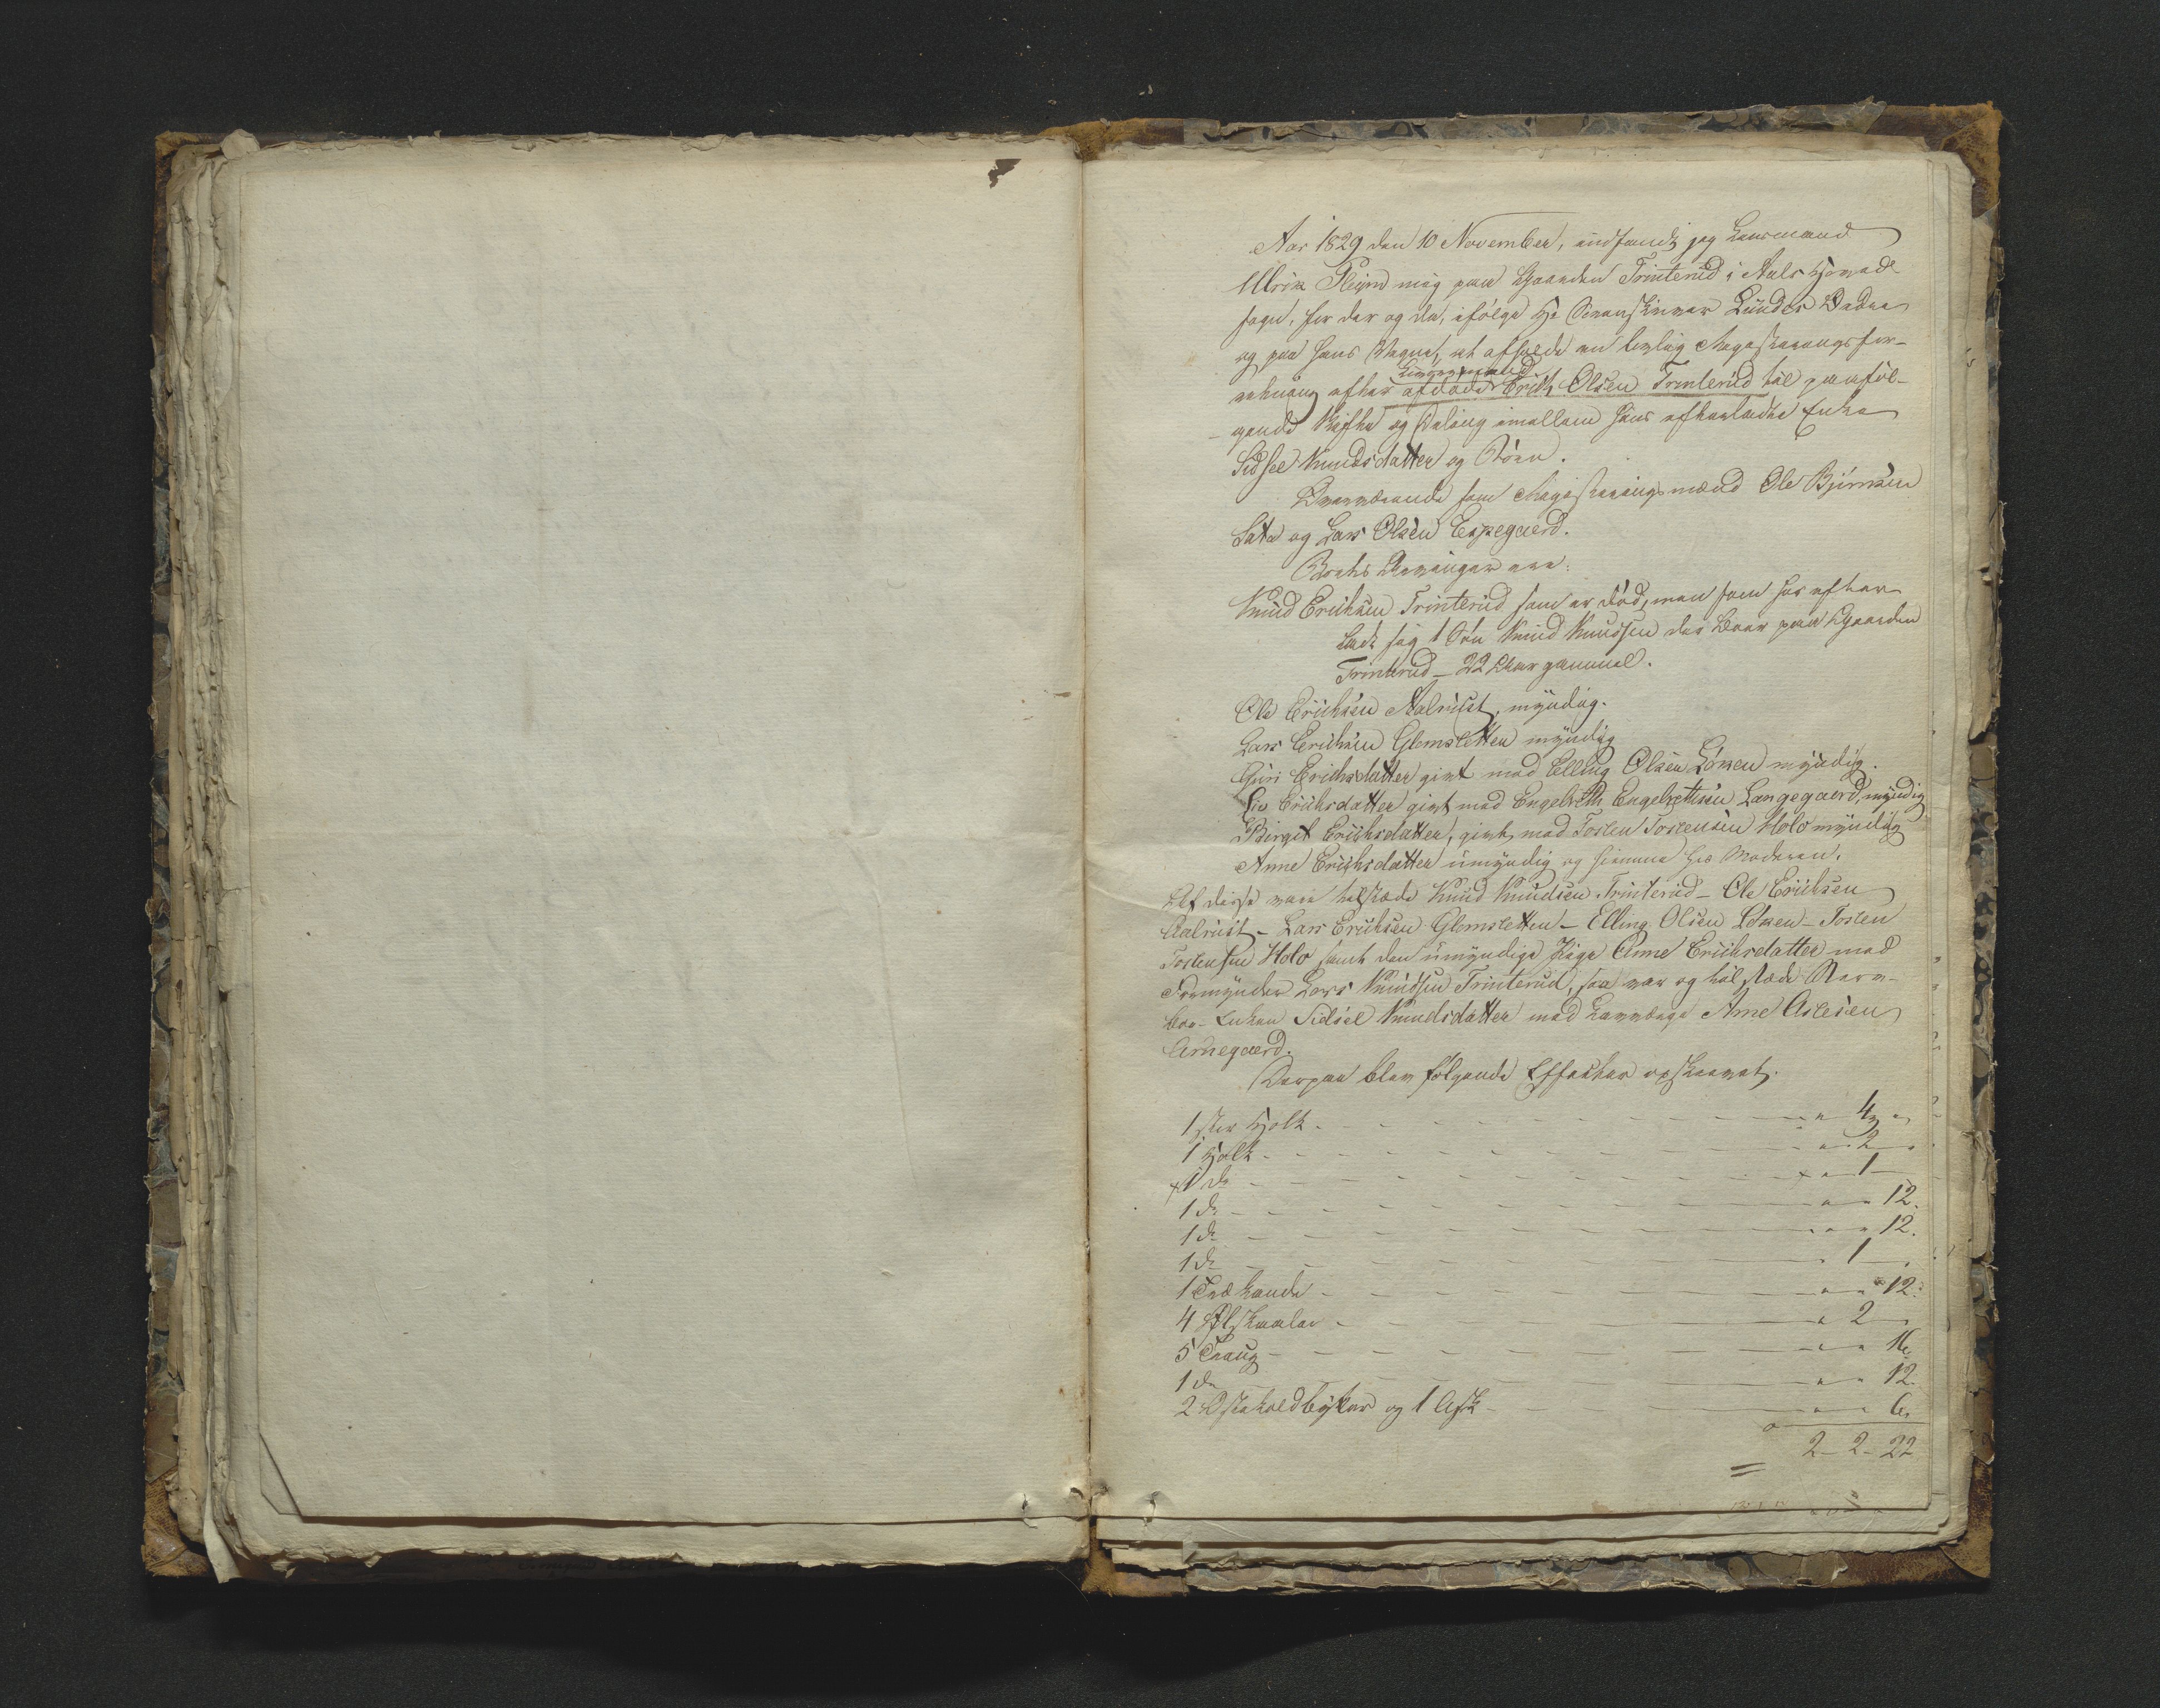 Aar 1829 den 10 November, indfandt jeg Lensmand
Ulrik Pleym mig paa Gaarden Trinterud i Aals Hoved
sogn, for der og da, ifølge Hr Sorenskriver Lunders Ordre
og paa hans Vegne, at afholde en lovlig Registreringsfor-
retning efter afdøde Erich Olsen Trinterud til paaføl-
gende Skifte og Deling imellem hans efterladte Enke
Sidsel Knudsdatter og Børn.
Overværende som Registreringsmænd Ole Björnsen
Sata og Lars Olsen Espegaerd.
Boets Arvinger ere:
Knud Erichsen Trinterud som er död, men som har efter
ladt sig 1 Søn Knud Knudsen der boer paa Gaarden
Trinterud - 22 Aar gammel.
Ole Erichsen Aalrust, myndig.
Lars Erichsen Glemsletten myndig
Guri Erichsdatter givt med Elling Olsen Lösen myndig.
Siv Erichsdatter givt med Engelreth Engelrethsen Langegaerd, myndig
Birgit Erichsdatter, givt med Tosten Tostensen Holo myndig
Anne Erichsdatter umyndig og hiemme hos Moderen.
Af disse vare tilstæde Knud Knudsen Trinterud - Ole Erichsen
Aalrust - Lars Erichsen Glemsletten - Elling Olsen Lösen - Tosten
Tostensen Holo samt den umyndige Pige Anne Erichsdatter med
Formynder Lars Knudsen Trinterud, saa var og tilstæde Sterv-
boe-Enken Sidsel Knudsdatter med Laugværge Arne Aslesen
Arnegaerd.
Derpaa blev følgende Effecter opskrevet.
1 stor Holk - " 4 "
1 Holk - " 2 "
+ 1 do - + " 1 -
1 do - " " 12.
1 do - " " 12.
1 do - " 1 -
1 Trækande - " " 12.
4 Ølskaaler - " 2 -
5 Traug - " " 16.
1 do - " " 12.
2 og 1 Ask - " " 6.
2 - 2 - 22